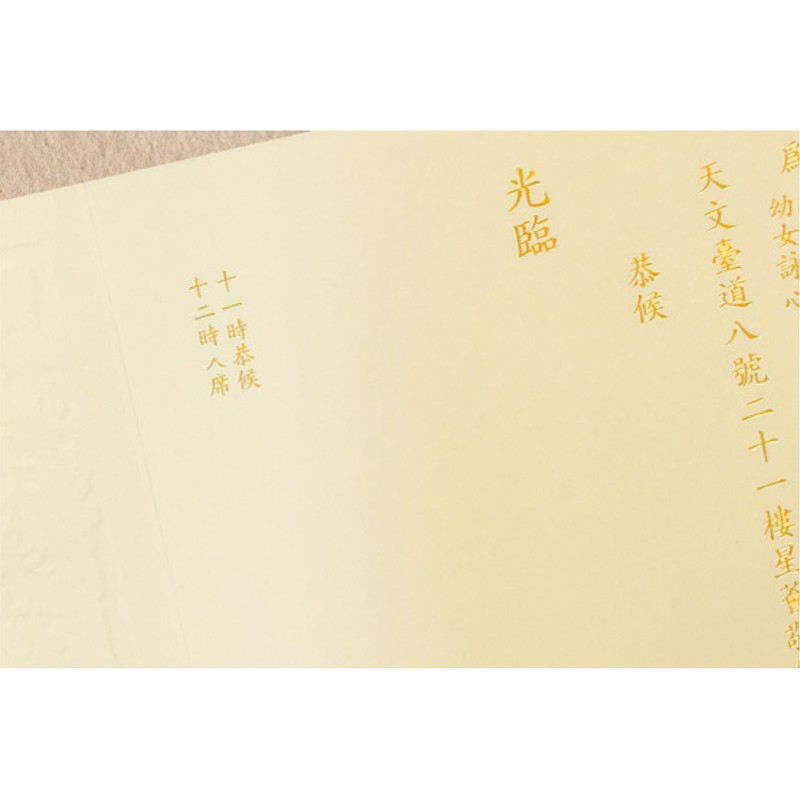 爲幼女詠心
天文臺道八號二十一樓星薈敬
恭候
光臨
十一時恭候
十二時入席